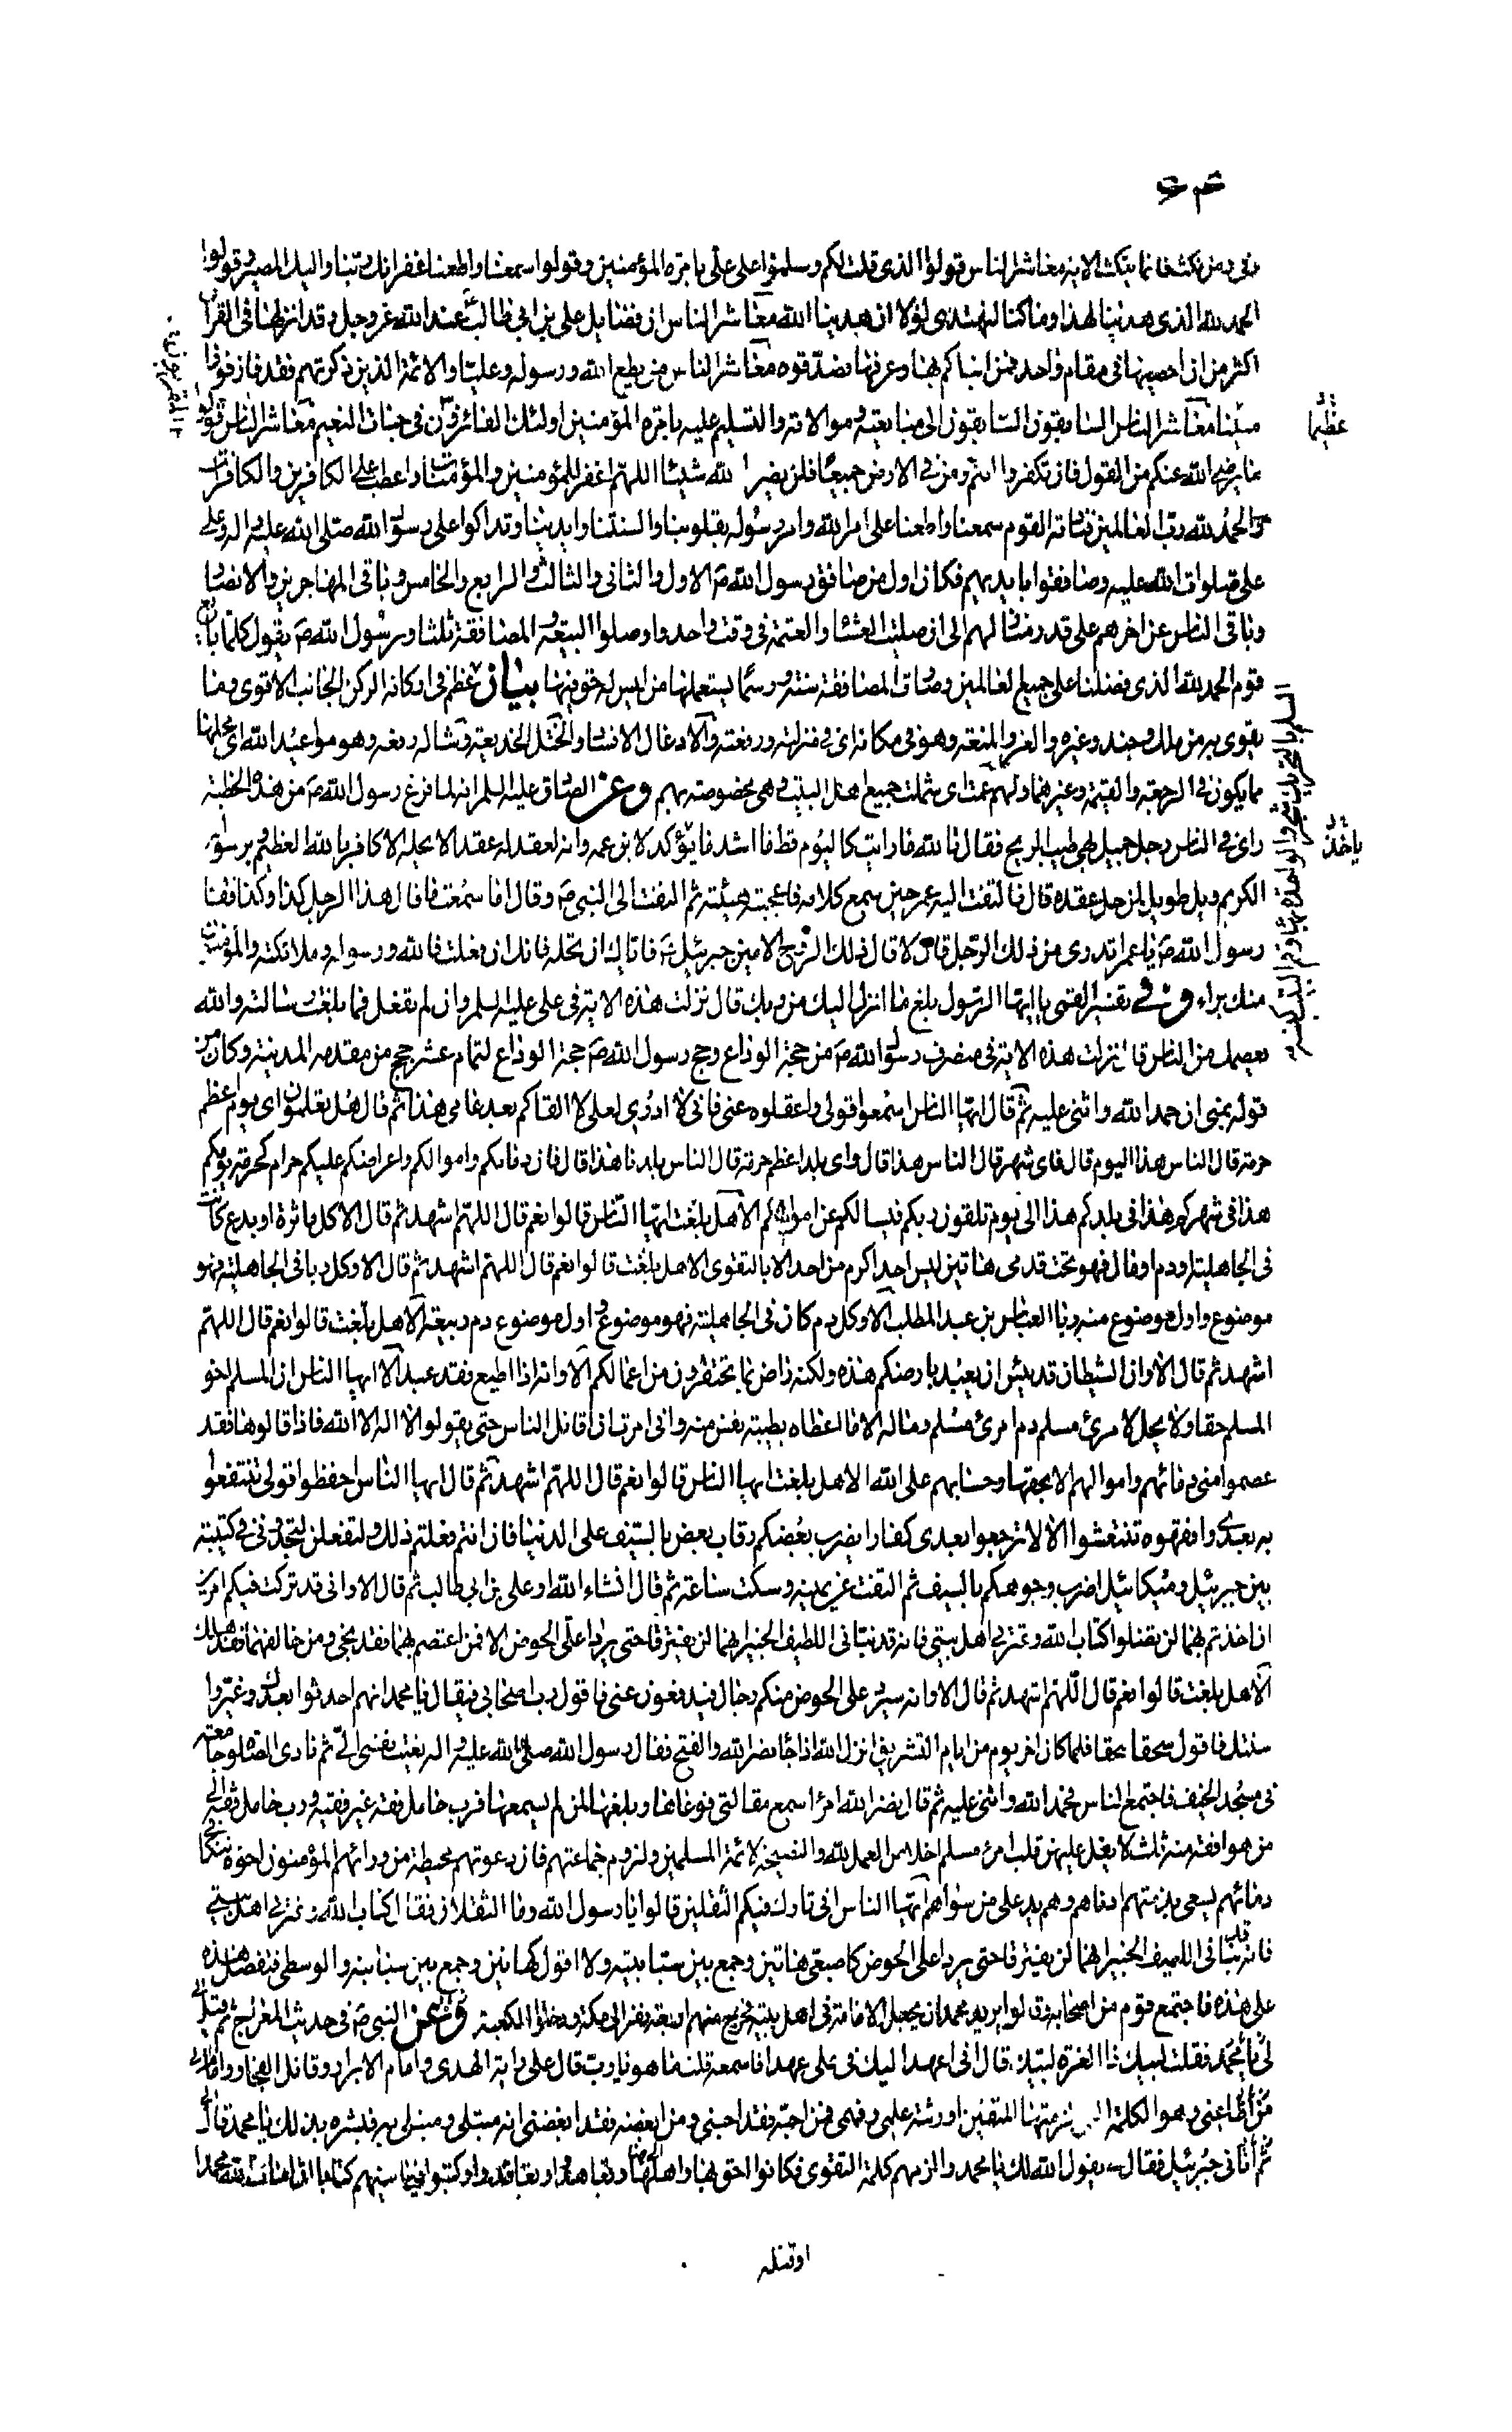 وفى ومن نكث فانما ينكث الاية معاشر الناس قولوا الذى قلت لكم وسلموا على على بامرة المؤمنين وقولوا سمعنا واطعنا غفرانك ربنا واليك المصير وقولوا
الحمد لله الذى هدينا لهذا وما كنا لنهتدى لولا ان هدينا الله معاشر الناس ان فضايل على بن ابى طالب عند الله عز وجل وقد انزلها فى القران
اكثر من ان احصيها فى مقام واحد فمن انباكم بها وعرفها فصدقوه معاشر الناس من يطع الله ورسوله وعليا والائمة الذين ذكرتهم فقد فاز فوزا
مبينا معاشر الناس السابقون السابقون الى مبايعته وموالاته والتسليم عليه بامرة المؤمنين اولئك الفائزون فى جنات النعيم معاشر الناس قولوا
ما يرضى الله عنكم من القول فان تكفروا انتم ومن فى الارض جميعا فلن يضر الله شيئا اللهم اغفر للمؤمنين والمؤمنات واعطب على الكافرين والكافرات
والحمد لله رب العالمين فناداته القوم سمعنا واطعنا على امر الله وامر رسوله بقلوبنا والسنتنا وايدينا وتداكوا على رسول الله صلى الله عليه واله وعلى
على صلوات الله عليه وصافقوا بايديهم فكان اول من صافق رسول الله ص الاول والثانى والثالث والرابع والخامس وباقى المهاجرين والانصار
وباقى الناس عن اخرهم على قدر منازلهم الى ان صليت العشاء والعتمة فى وقت واحد واوصلوا البيعة والمصافقة ثلثا ورسول الله ص يقول كلما بايع
قوم الحمد لله الذى فضلنا على جميع العالمين وصارت المصافقة سنة ورسما يستعملها من ليس له حق فيها بيان عظم فى اركانه الركن الجانب الاقوى وما
يقوى به من ملك وجند وغيره والعز والمنعة وهو فى مكانه اى فى منزلته ورفعته والادغال الافساد والختل الخديعة
مما يكون فى الرجعة والقيمة وغيرهما ولهم عمت اى شملت جميع اهل البيت وهى مخصوصة بهم وعن الصادق عليه السلم انه لما فرغ رسول الله ص من هذه الخطبة
راى فى الناس رجل جميل بهى طيب الريح فقال تالله ما رايت كاليوم قط ما اشد ما يؤكد لابن عمه وانه لعقد له عقد لا يحله الا كافر بالله العظيم وبرسوله
الكريم ويل طويل لمن حل عقده قال فالتفت اليه عمر حين سمع كلامه فاعجبته هيئته ثم التفت الى النبى ص وقال اما سمعت ما قال هذا الرجل كذا وكذا فقال
رسول الله ص يا عمر اتدرى من ذلك الرجل قال لا قال ذلك الروح الامين جبرئيل ع فاياك ان تحله فانك ان فعلت فالله ورسوله وملائكته والمؤمنون
منك براء وفى تفسير القمى يا ايها الرسول بلغ ما انزل اليك من ربك قال نزلت هذه الاية فى على عليه السلم وان لم تفعل فما بلغت رسالته والله
يعصمك من الناس قال نزلت هذه الاية فى منصرف رسول الله ص من حجة الوداع وحج رسول الله ص حجة الوداع لتمام عشر حجج من مقدمه المدينة وكان من
قوله بمنى ان حمد الله واثنى عليه ثم قال ايها الناس اسمعوا قولى واعقلوه عنى فانى لا ادرى لعلى لا القاكم بعد عامى هذا ثم قال هل تعلمون اى يوم اعظم
حرمة قال الناس هذا اليوم قال فاى شهر قال الناس هذا قال واى بلد اعظم حرمة قال الناس بلدنا هذا قال فان دماءكم واموالكم واعراضكم عليكم حرام كحرمة يومكم
هذا فى شهركم هذا فى بلدكم هذا الى يوم تلقون ربكم فيسالكم عن اعمالكم الا هل بلغت ايها الناس قالوا نعم قال اللهم اشهد ثم قال الا كل ماثرة او بدع كانت
فى الجاهلية او دم او مال فهو تحت قدمى هاتين ليس احد اكرم من احد الا بالتقوى الا هل بلغت قالوا نعم قال اللهم اشهد ثم قال الا وكل ربا فى الجاهلية فهو
موضوع واول موضوع منه ربا العباس بن عبد المطلب الا وكل دم كان فى الجاهلية فهو موضوع واول موضوع دم ربيعة الا هل بلغت قالوا نعم قال اللهم
اشهد ثم قال الا وان الشيطان قد يئس ان يعبد بارضكم هذه ولكنه راض بما تحتقرون من اعمالكم الا وانه اذا اطيع فقد عبد الا ايها الناس ان المسلم اخو
المسلم حقا ولا يحل لامرئ مسلم دم امرئ مسلم وماله الا ما اعطاه بطيبة نفس منه وانى امرت ان اقاتل الناس حتى يقولوا لا اله الا الله فاذا قالوها فقد
عصموا منى دمائهم واموالهم الا بحقها وحسابهم على الله الا هل بلغت ايها الناس قالوا نعم قال اللهم اشهد ثم قال ايها الناس احفظوا قولى تنتفعوا
به بعدى وافقهوه تنتعشوا الا لا ترجعوا بعدى كفارا يضرب بعضكم رقاب بعض بالسيف على الدنيا فان انتم فعلتم ذلك ولتفعلن لتجدونى فى كتيبة
بين جبرئيل وميكائيل اضرب وجوهكم بالسيف ثم التفت عن يمينه وسكت ساعة ثم قال انشاء الله او على بن ابى طالب ثم قال الا وانى قد تركت فيكم امرين
ان اخذتم بهما لن تضلوا كتاب الله وعترتى اهل بيتى فانه قد نبانى اللطيف الخبير انهما لن يفترقا حتى يردا على الحوض الا فمن اعتصم بهما فقد نجى ومن خالفهما فقد هلك
الا هل بلغت قالوا نعم قال اللهم اشهد ثم قال الا وانه سيرد على الحوض منكم رجال فيدفعون عنى فاقول رب اصحابى فيقال يا محمد انهم احدثوا بعدك وغيروا
سنتك فاقول سحقا سحقا فلما كان اخر يوم من ايام التشريق انزل الله اذا جاء نصر الله والفتح فقال رسول الله صلى الله عليه واله نعيت الى نفسى ثم نادى الصلوة جامعة
فى مسجد الخيف فاجتمع الناس فحمد الله واثنى عليه ثم قال نضر الله امرءا سمع مقالتى فوعاها وبلغها لمن لم يسمعها فرب حامل فقه غير فقيه ورب حامل فقه الى
من هو افقه منه ثلث لا يغل عليهن قلب امرئ مسلم اخلاص العمل لله والنصيحة لائمة المسلمين ولزوم جماعتهم فان دعوتهم محيطة من ورائهم المؤمنون اخوة تتكافى
دمائهم يسعى بذمتهم ادناهم وهم يد على من سواهم ايها الناس انى تارك فيكم الثقلين قالوا يا رسول الله وما الثقلان فقال كتاب الله وعترتى اهل بيتى
فانه قد نبانى اللطيف الخبير انهما لن يفترقا حتى يردا على الحوض كاصبعى هاتين وجمع بين سبابتيه ولا اقول كهاتين وجمع بين سبابته والوسطى فتفضل هذه
على هذه فاجتمع قوم من اصحابه وقالوا يريد محمد ان يجعل الامامة فى اهل بيته فخرج منهم اربعة نفر الى مكة ودخلوا الكعبة وعن النبى ص فى حديث المعراج ثم قيل
لى يا محمد فقلت لبيك ذا العزة لبيك قال انى اعهد اليك فى على عهدا فاسمعه قلت ما هو يا رب قال على راية الهدى وامام الابرار وقاتل الفجار وامام
من اطاعنى وهو الكلمة التى الزمتها المتقين اورثته علمى وفهمى فمن احبه فقد احبنى ومن ابغضه فقد ابغضنى انه مبتلى ومبتلى به فبشره بذلك يا محمد قال
ثم اتانى جبرئيل فقال يقول الله لك يا محمد والزمهم كلمة التقوى وكانوا احق بها واهلها وتعاهدوا وتعاقدوا وكتبوا فيما بينهم كتابا ان امات الله محمدا
او قتله
عظيما
ياخذ